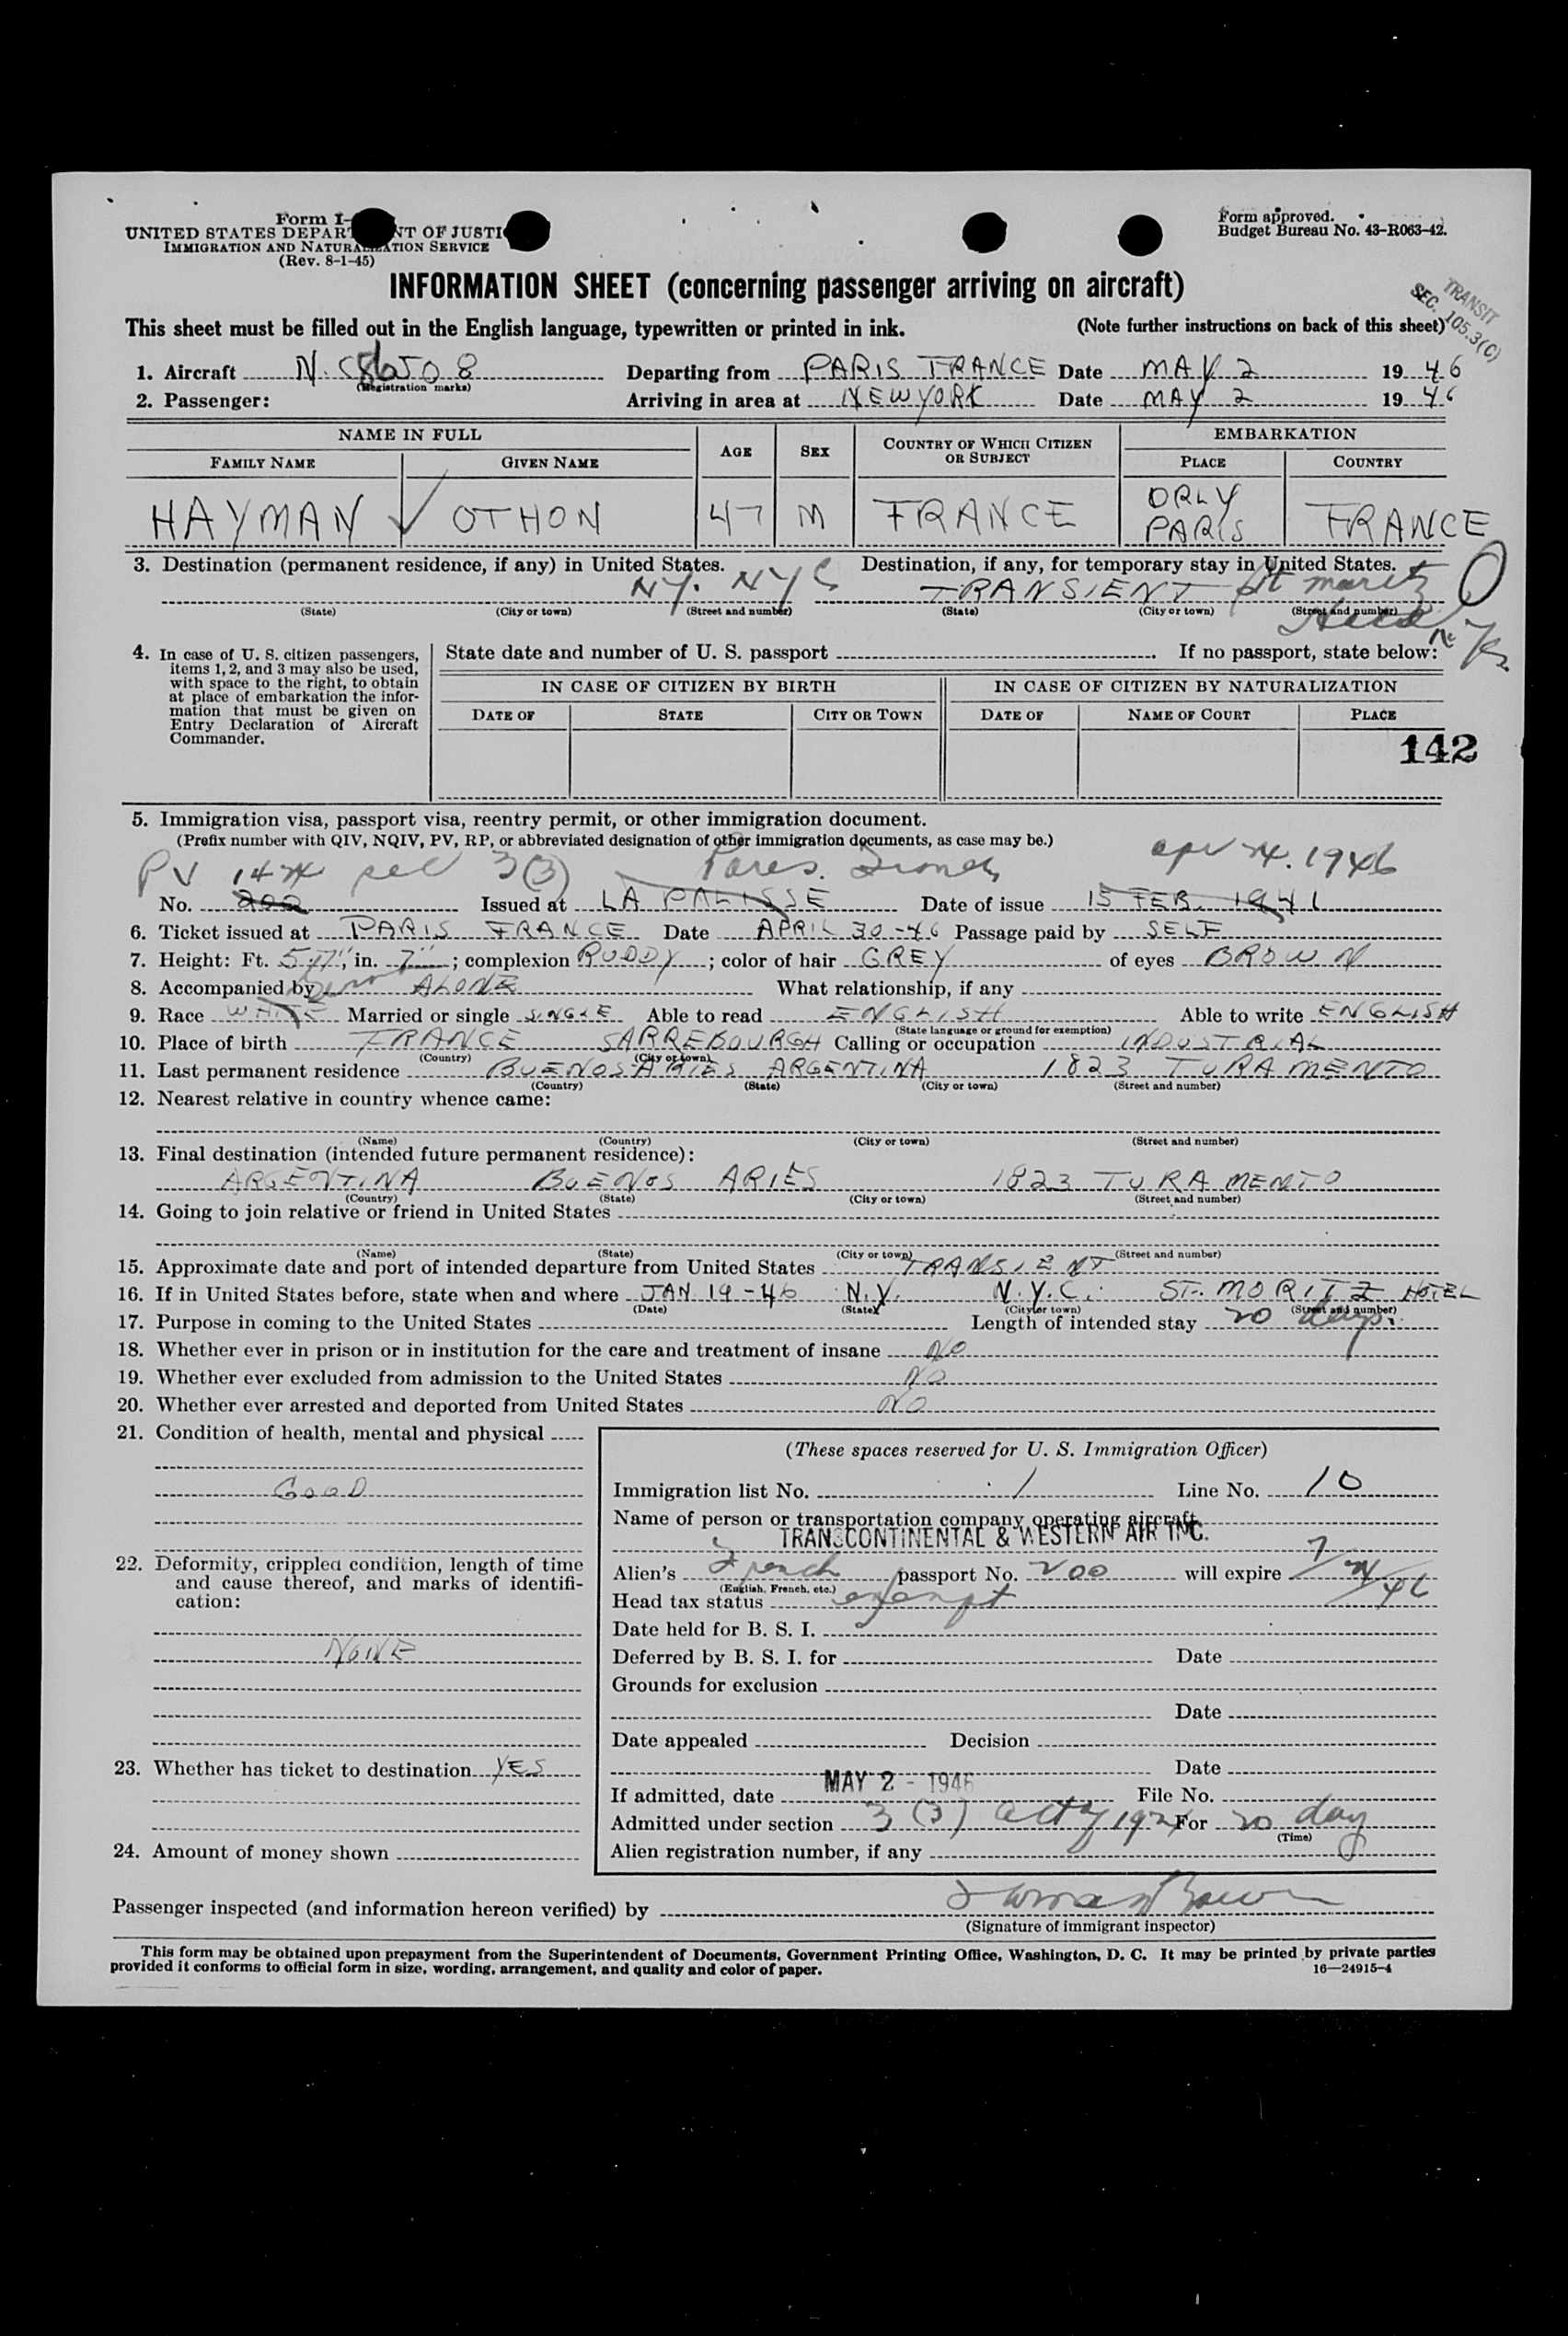 Form I-
UNITED STATES DEPAR NT OF JUSTI
IMMIGRATION AND NATURALIZATION SERVICE
(Rev. 8-1-45)
Form approved.
Budget Bureau No. 43-R063-42.
INFORMATION SHEET (concerning passenger arriving on aircraft)
TRANSIT
SEC. 105.3(C)
This sheet must be filled out in the English language, typewritten or printed in ink. (Note further instructions on back of this sheet)
1. Aircraft N.C86508 Departing from PARIS FRANCE Date MAY 2 1946
(Registration marks)
2. Passenger: Arriving in area at NEW YORK Date MAY 2 1946
NAME IN FULL AGE SEX COUNTRY OF WHICH CITIZEN OR SUBJECT EMBARKATION
FAMILY NAME GIVEN NAME PLACE COUNTRY
HAYMAN ✓ OTHON 47 M FRANCE ORLY PARIS FRANCE
3. Destination (permanent residence, if any) in United States. Destination, if any, for temporary stay in United States.
NY. NYC TRANSIENT St moritz
(State) (City or town) (Street and number) (State) (City or town) (Street and number)
4. In case of U. S. citizen passengers, items 1, 2, and 3 may also be used, with space to the right, to obtain at place of embarkation the information that must be given on Entry Declaration of Aircraft Commander.
State date and number of U. S. passport If no passport, state below:
IN CASE OF CITIZEN BY BIRTH IN CASE OF CITIZEN BY NATURALIZATION
DATE OF STATE CITY OR TOWN DATE OF NAME OF COURT PLACE
142
5. Immigration visa, passport visa, reentry permit, or other immigration document.
(Prefix number with QIV, NQIV, PV, RP, or abbreviated designation of other immigration documents, as case may be.)
PV sec 3(3) Paris. France 1946
No. 200 Issued at LA PALISSE Date of issue 15 FEB. 1941
6. Ticket issued at PARIS FRANCE Date APRIL 30-46 Passage paid by SELF
7. Height: Ft. 5, in. 7"; complexion RUDDY; color of hair GREY of eyes BROWN
8. Accompanied by ALONE What relationship, if any
9. Race WHITE Married or single SINGLE Able to read ENGLISH Able to write ENGLISH
(State language or ground for exemption)
10. Place of birth FRANCE SARREBOURGH Calling or occupation INDUSTRIAL
(Country) (City or town)
11. Last permanent residence BUENOS ARIES ARGENTINA 1823 TURAMENTO
(Country) (State) (City or town) (Street and number)
12. Nearest relative in country whence came:
(Name) (Country) (City or town) (Street and number)
13. Final destination (intended future permanent residence):
ARGENTINA BUENOS ARIES 1823 TURAMENTO
(Country) (State) (City or town) (Street and number)
14. Going to join relative or friend in United States
(Name) (State) (City or town) (Street and number)
15. Approximate date and port of intended departure from United States TRANSIENT
16. If in United States before, state when and where JAN 19-46 N.Y. N.Y.C. ST. MORITZ HOTEL
(Date) (State) (City or town) (Street and number)
17. Purpose in coming to the United States Length of intended stay 20 days.
18. Whether ever in prison or in institution for the care and treatment of insane NO
19. Whether ever excluded from admission to the United States NO
20. Whether ever arrested and deported from United States NO
21. Condition of health, mental and physical
GOOD
22. Deformity, crippled condition, length of time and cause thereof, and marks of identification:
NONE
23. Whether has ticket to destination YES
24. Amount of money shown
(These spaces reserved for U. S. Immigration Officer)
Immigration list No. 1 Line No. 10
Name of person or transportation company operating aircraft
TRANSCONTINENTAL & WESTERN AIR INC.
Alien's French passport No. 200 will expire
(English, French, etc.)
Head tax status exempt
Date held for B. S. I.
Deferred by B. S. I. for Date
Grounds for exclusion
Date
Date appealed Decision
Date
If admitted, date MAY 2 - 1946 File No.
Admitted under section 3 (3) act of 1924 For 20 day
(Time)
Alien registration number, if any
Passenger inspected (and information hereon verified) by
(Signature of immigrant inspector)
This form may be obtained upon prepayment from the Superintendent of Documents, Government Printing Office, Washington, D. C. It may be printed by private parties
provided it conforms to official form in size, wording, arrangement, and quality and color of paper.
16—24915-4